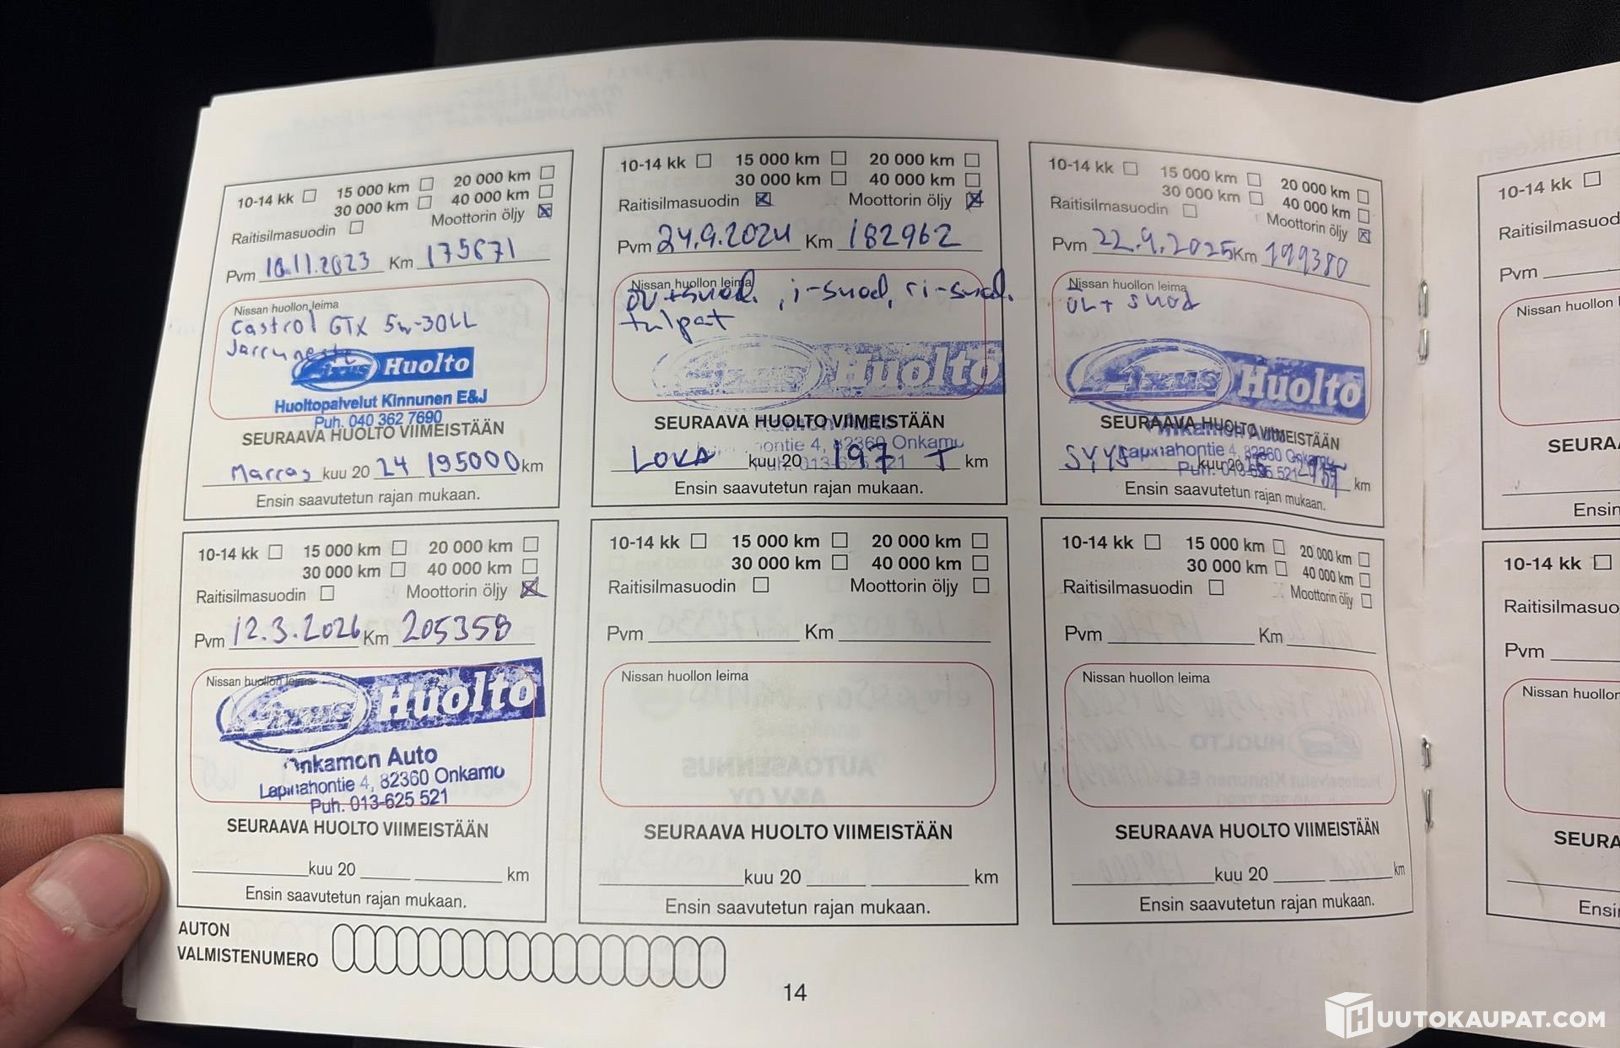 10-14 kk 15 000 km 20 000 km
30 000 km 40 000 km
Raitisilmasuodin Moottorin öljy
Pvm 10.11.2023 Km 175671
Nissan huollon leima
Castrol GTX 5w-30LL
Jarruneste
Fixus Huolto
Huoltopalvelut Kinnunen E&J
Puh. 040 362 7690
SEURAAVA HUOLTO VIIMEISTÄÄN
Marras kuu 20 24 195000 km
Ensin saavutetun rajan mukaan.
10-14 kk 15 000 km 20 000 km
30 000 km 40 000 km
Raitisilmasuodin Moottorin öljy
Pvm 24.9.2024 Km 182962
Nissan huollon leima
öv+suod., i-suod, ri-suod.
tulpat
Fixus Huolto
SEURAAVA HUOLTO VIIMEISTÄÄN
4, 82360 Onkamo
LOKA kuu 20 197 T km
Ensin saavutetun rajan mukaan.
10-14 kk 15 000 km 20 000 km
30 000 km 40 000 km
Raitisilmasuodin Moottorin öljy
Pvm 22.9.2025 Km 199380
Nissan huollon leima
öv+ suod
Fixus Huolto
SEURAAVA HUOLTO VIIMEISTÄÄN
Lapinahontie 4, 82360 Onkamo
SYYS kuu 20 km
Ensin saavutetun rajan mukaan.
10-14 kk 15 000 km 20 000 km
30 000 km 40 000 km
Raitisilmasuodin Moottorin öljy
Pvm 12.3.2026 Km 205358
Nissan huollon leima
Fixus Huolto
Onkamon Auto
Lapinahontie 4, 82360 Onkamo
Puh. 013-625 521
SEURAAVA HUOLTO VIIMEISTÄÄN
kuu 20 km
Ensin saavutetun rajan mukaan.
10-14 kk 15 000 km 20 000 km
30 000 km 40 000 km
Raitisilmasuodin Moottorin öljy
Pvm Km
Nissan huollon leima
SEURAAVA HUOLTO VIIMEISTÄÄN
kuu 20 km
Ensin saavutetun rajan mukaan.
10-14 kk 15 000 km 20 000 km
30 000 km 40 000 km
Raitisilmasuodin Moottorin öljy
Pvm Km
Nissan huollon leima
SEURAAVA HUOLTO VIIMEISTÄÄN
kuu 20 km
Ensin saavutetun rajan mukaan.
AUTON
VALMISTENUMERO
14
10-14 kk
Raitisilmasuod
Pvm
Nissan huollon
SEURA
Ensin
10-14 kk
Raitisilmasuo
Pvm
Nissan huollon
SEURA
Ensi
HUUTOKAUPAT.COM